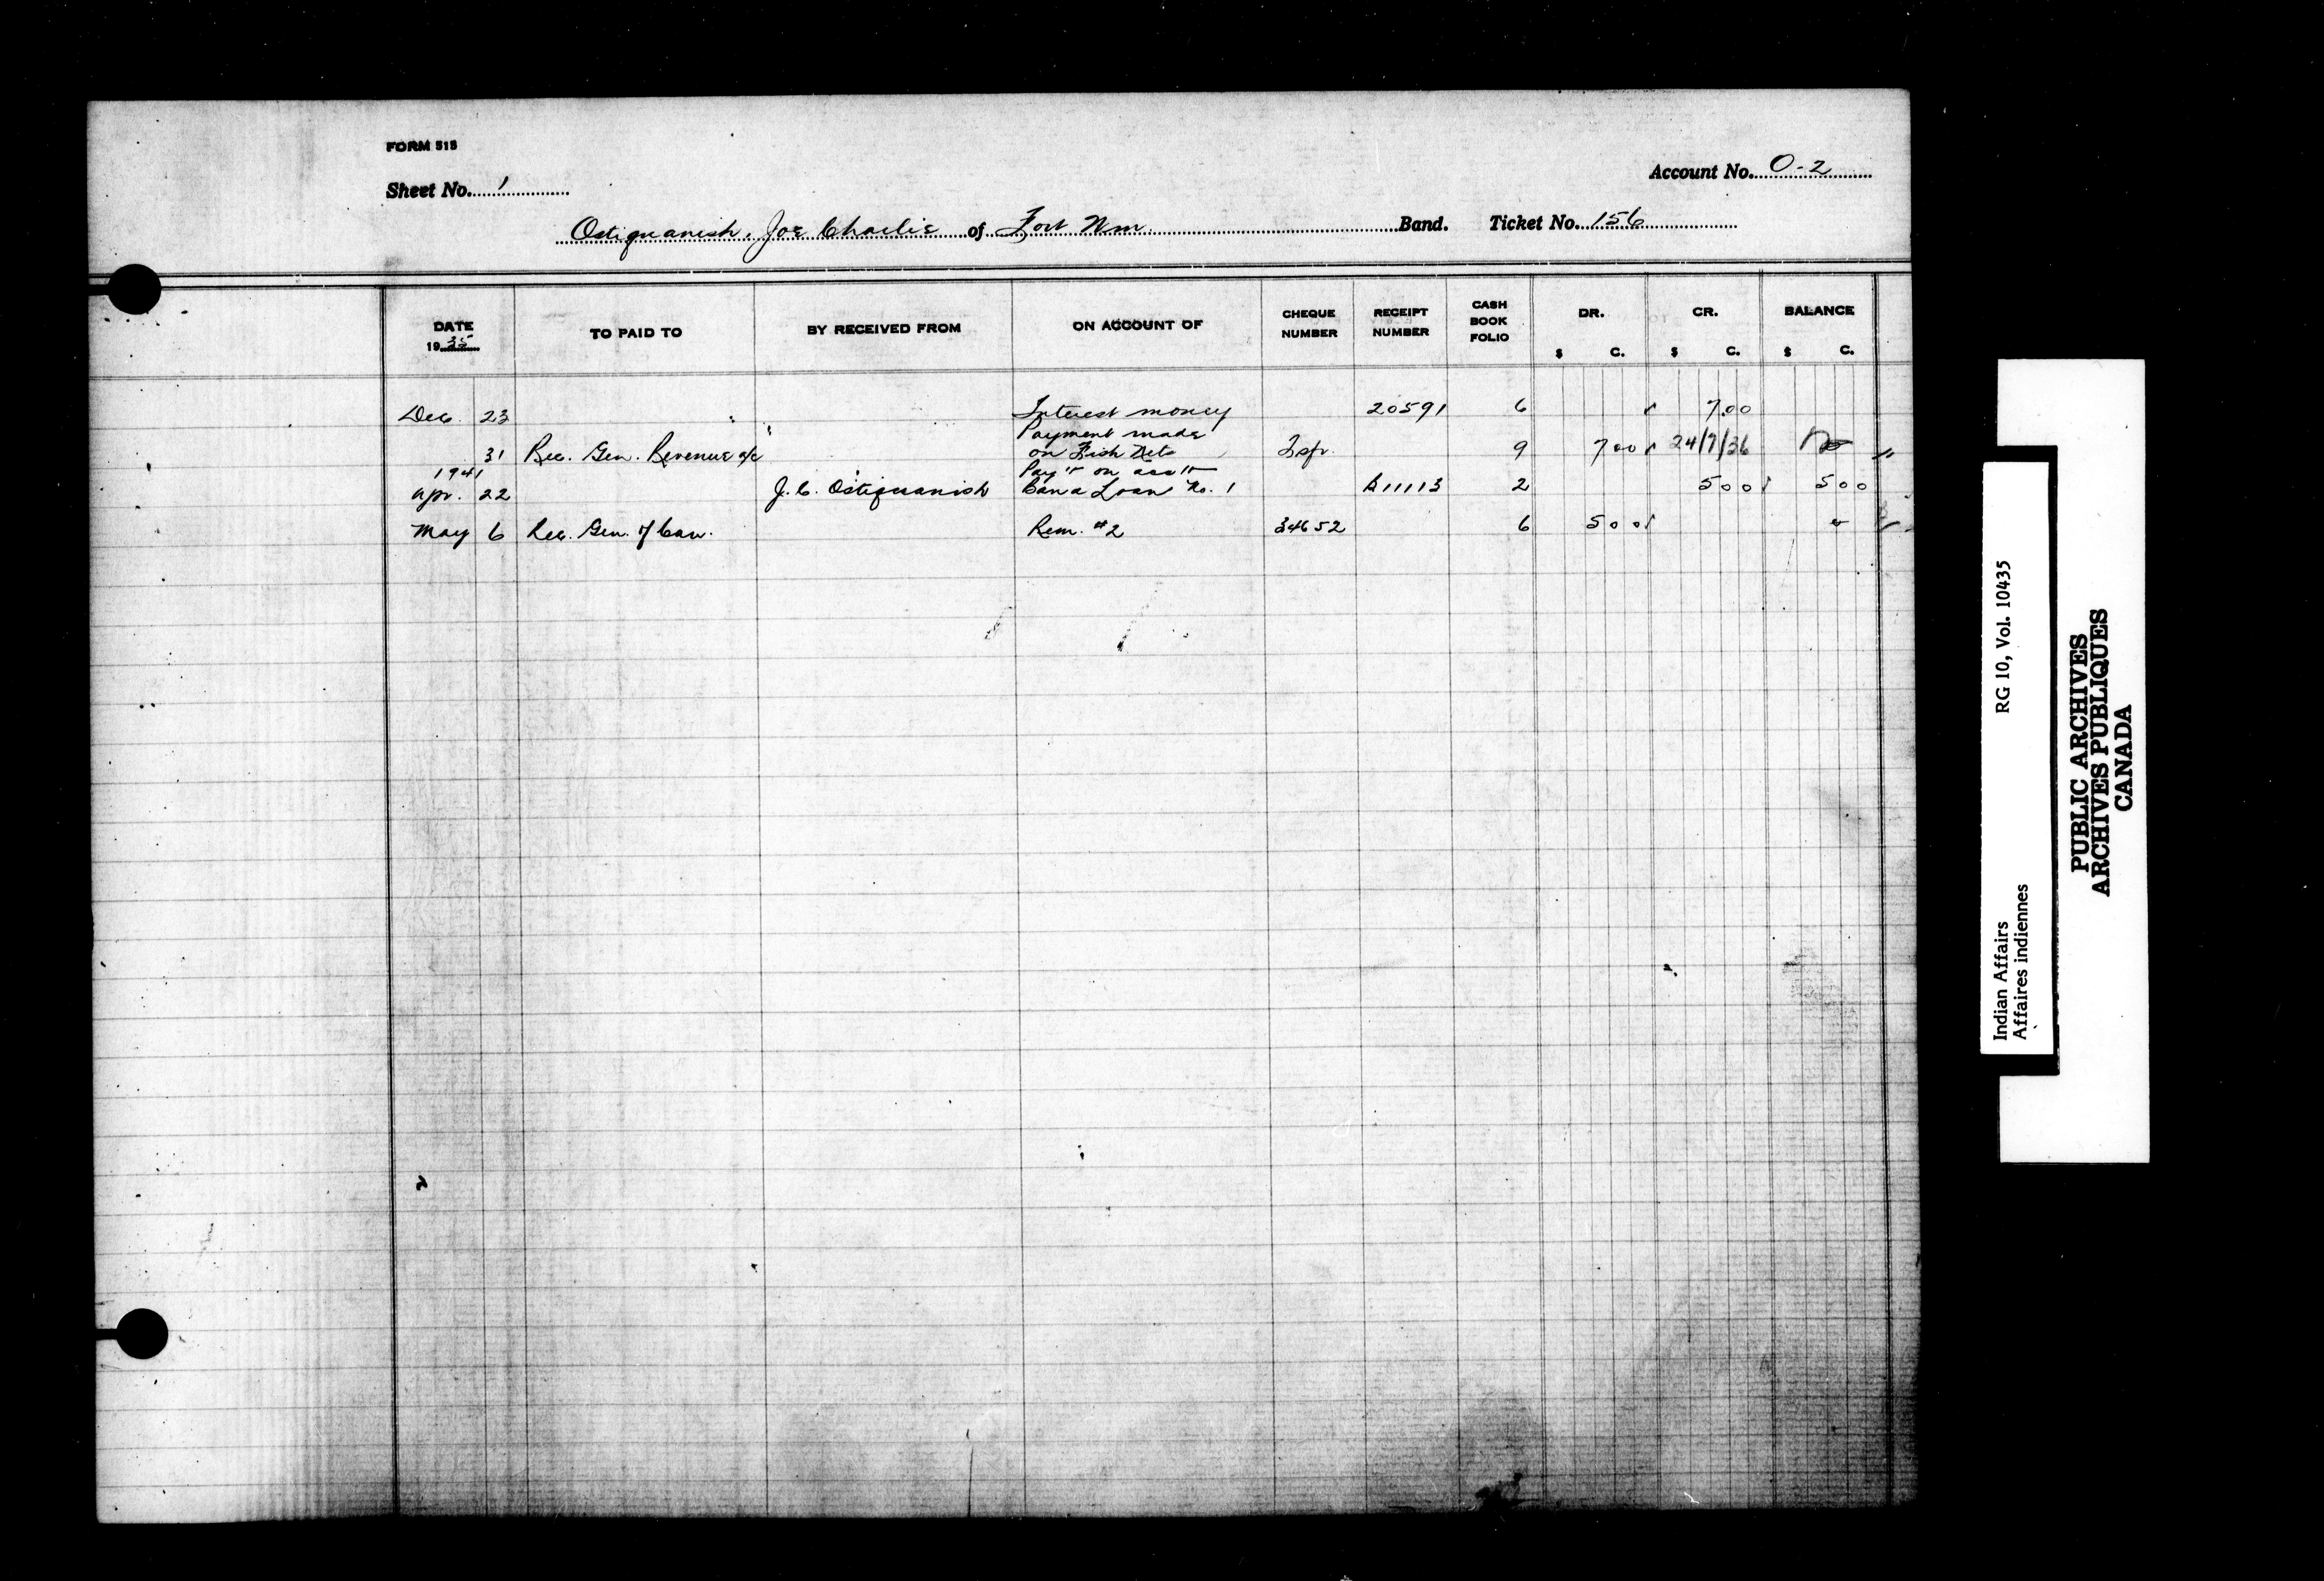 FORM 515
Sheet No. 1
Account No. O-2
Ostiquanish, Joe Charlie of Fort Wm. Band. Ticket No. 156
DATE 1935 TO PAID TO BY RECEIVED FROM ON ACCOUNT OF CHEQUE NUMBER RECEIPT NUMBER CASH BOOK FOLIO DR. CR. BALANCE
$ C. $ C. $ C.
Dec. 23 Interest money 20591 6 7.00
Payment made
31 Rec. Gen. Revenue a/c on Fish Nets Tsfr. 9 7 00 24/7/36
1941 Pay't on acc't
Apr. 22 J. C. Ostiquanish Band Loan No. 1 A11113 2 5 00 5 00
May 6 Rec. Gen. of Can. Rem. #2 34652 6 5 00
Indian Affairs RG 10, Vol. 10435
Affaires indiennes
PUBLIC ARCHIVES
ARCHIVES PUBLIQUES
CANADA